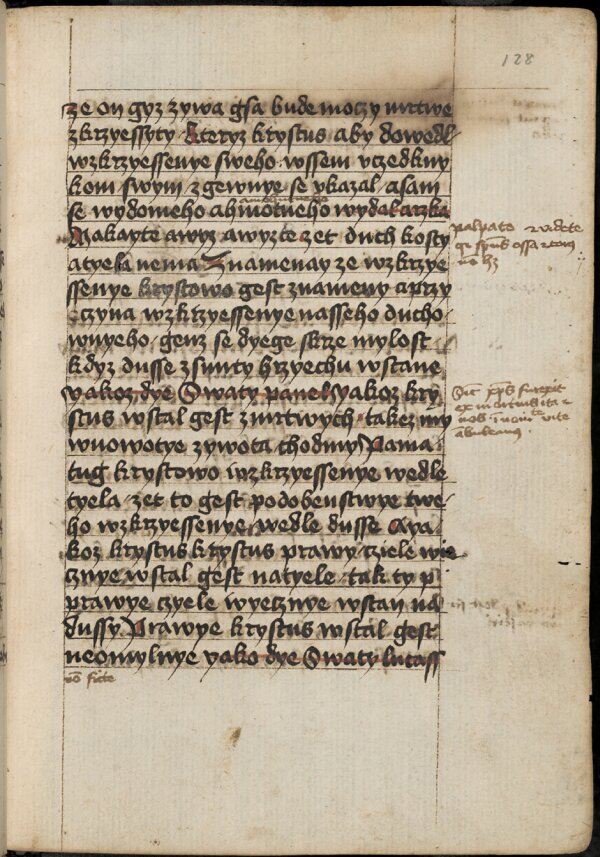 128
ze on gyz zywa gsa bude moczy mrtwe
zkrzyessyty kteryz krystus aby dowedl
wzkrzyessenye sweho wssem vczedlny
kom swym zgewnye se vkazal asam
se wydomeho ahmotneho wydal arzka
Makayte awyz awyzte zet duch kosty
atyela nema Znamenay ze wzkrzye
ssenye krystowo gest znameny aprzy
czyna wzkrzyessenye nasseho ducho
wnyeho genz se dyege skrze mylost
kdyz dusse zsmrty hrzyechu wstane
yakoz dye Swaty pawel yakoz kry
stus wstal gest zmrtwych takez my
wnowotye zywota chodmy Pama
tug krystowo wzkrzyessenye wedle
tyela zet to gest podobenstwye twe
ho wzkrzyessenye wedle dusse Aya
koz krystus krystus prawy cziele wie
cznye wstal gest natyele tak ty p
prawye czyele wyecznye wstan na
dussy Prawye krystus wstal gest
neomylnye yako dye Swaty lucass
palpate et videte
ossa